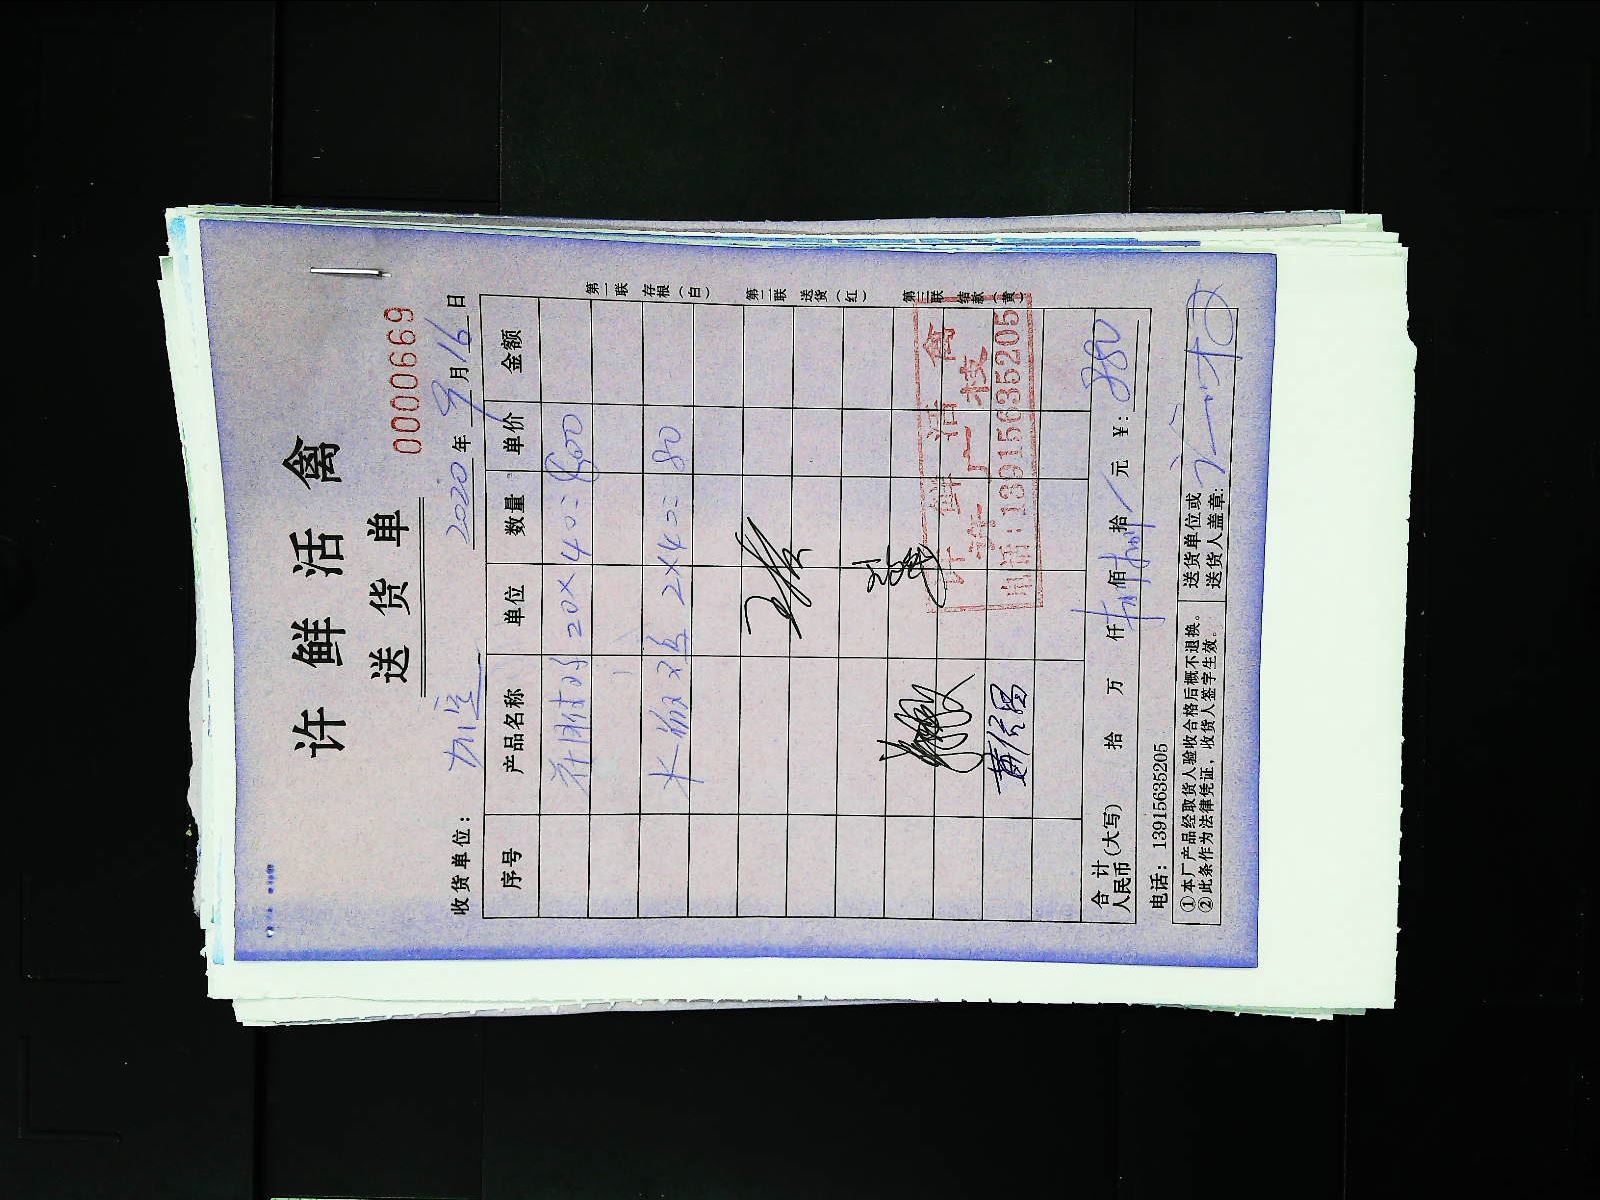 许鲜活禽
送货单
0000669
收货单位： 2020年9月16日
序号 产品名称 单位 数量 单价 金额
20×40= 800
2×40= 80
第一联 存根（白）
第二联 送货（红）
第三联 结款（黄）
许鲜活禽
电话：13915635205
合计 人民币（大写） 拾 万 仟 佰 拾 元 ¥：880
电话：13915635205
①本厂产品经取货人验收合格后概不退换。
②此条作为法律凭证，收货人签字生效。
送货单位或
送货人盖章：